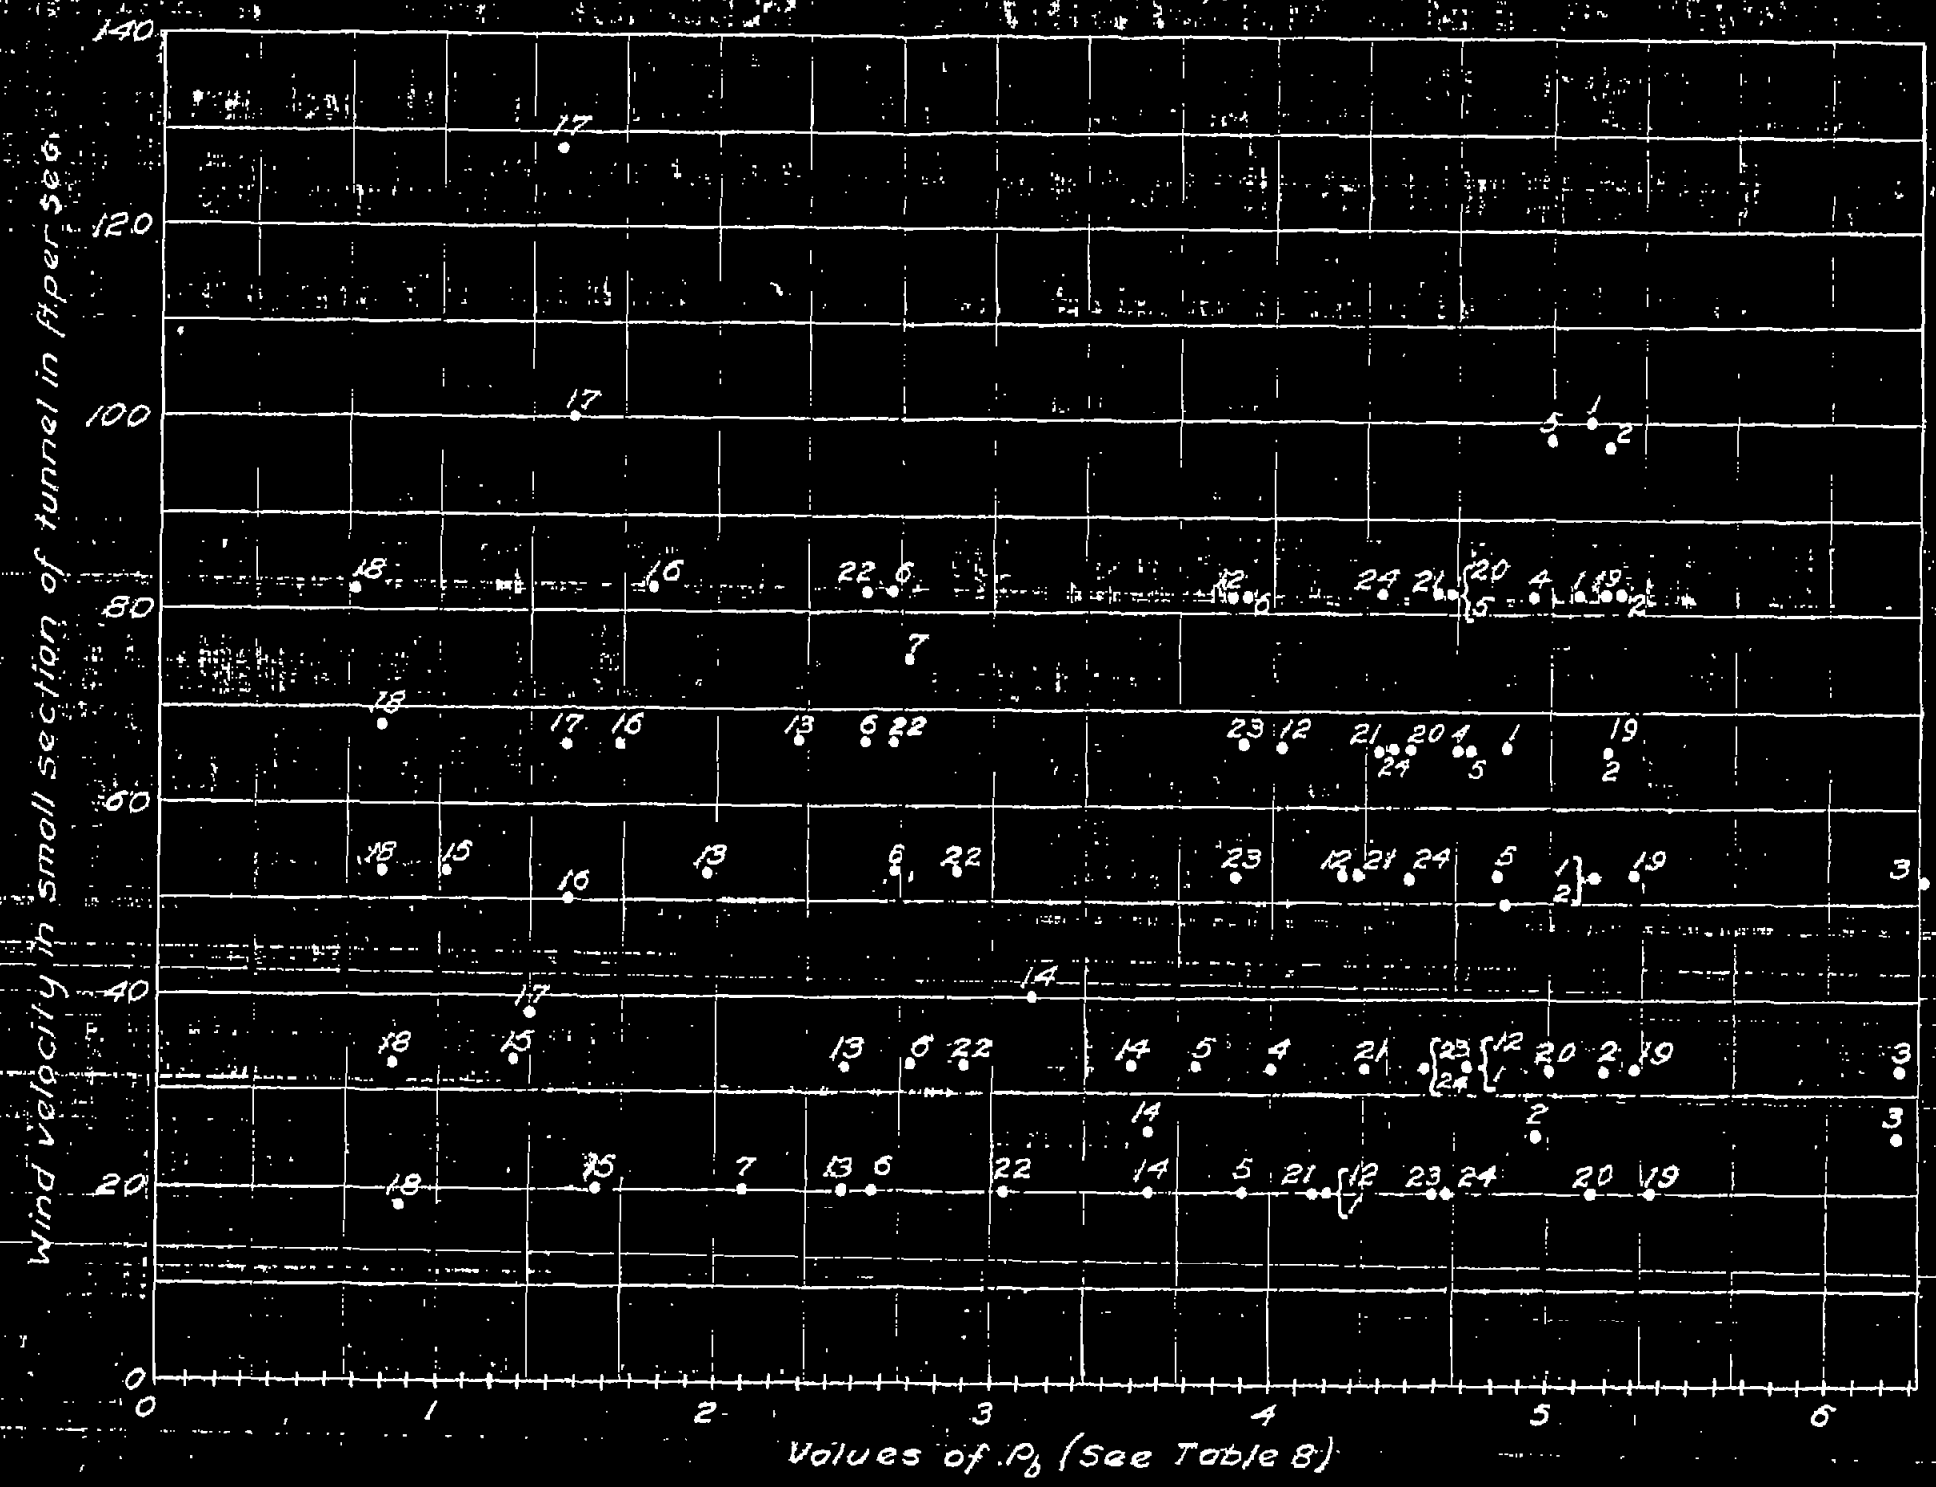 Wind velocity in small section of tunnel in ft per sec.
140
17
120
100
17
5 1 2
80
18 16 22 6 12 6 24 21 { 20 5 4 1 19 2
7
18
17 16 13 6 22 23 12 21 24 20 4 5 1 19 2
60
18 15 13 6 22 23 12 21 24 5 1 2 } 19 3
16
40
17 14
18 15 13 6 22 14 5 4 21 { 23 24 { 12 1 20 2 19 3
14 2 3
20
18 15 7 13 6 22 14 5 21 { 12 1 23 24 20 19
0
0 1 2 3 4 5 6
Values of Pb (See Table 8)